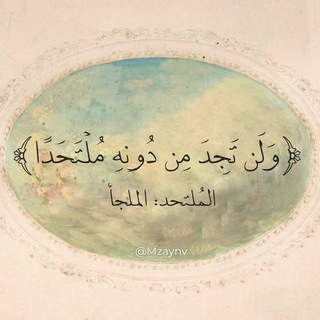 ﴿وَلَن تَجِدَ مِن دُونِهِ مُلْتَحَدًا﴾
المُلتحد: الملجأ
@Mzaynv